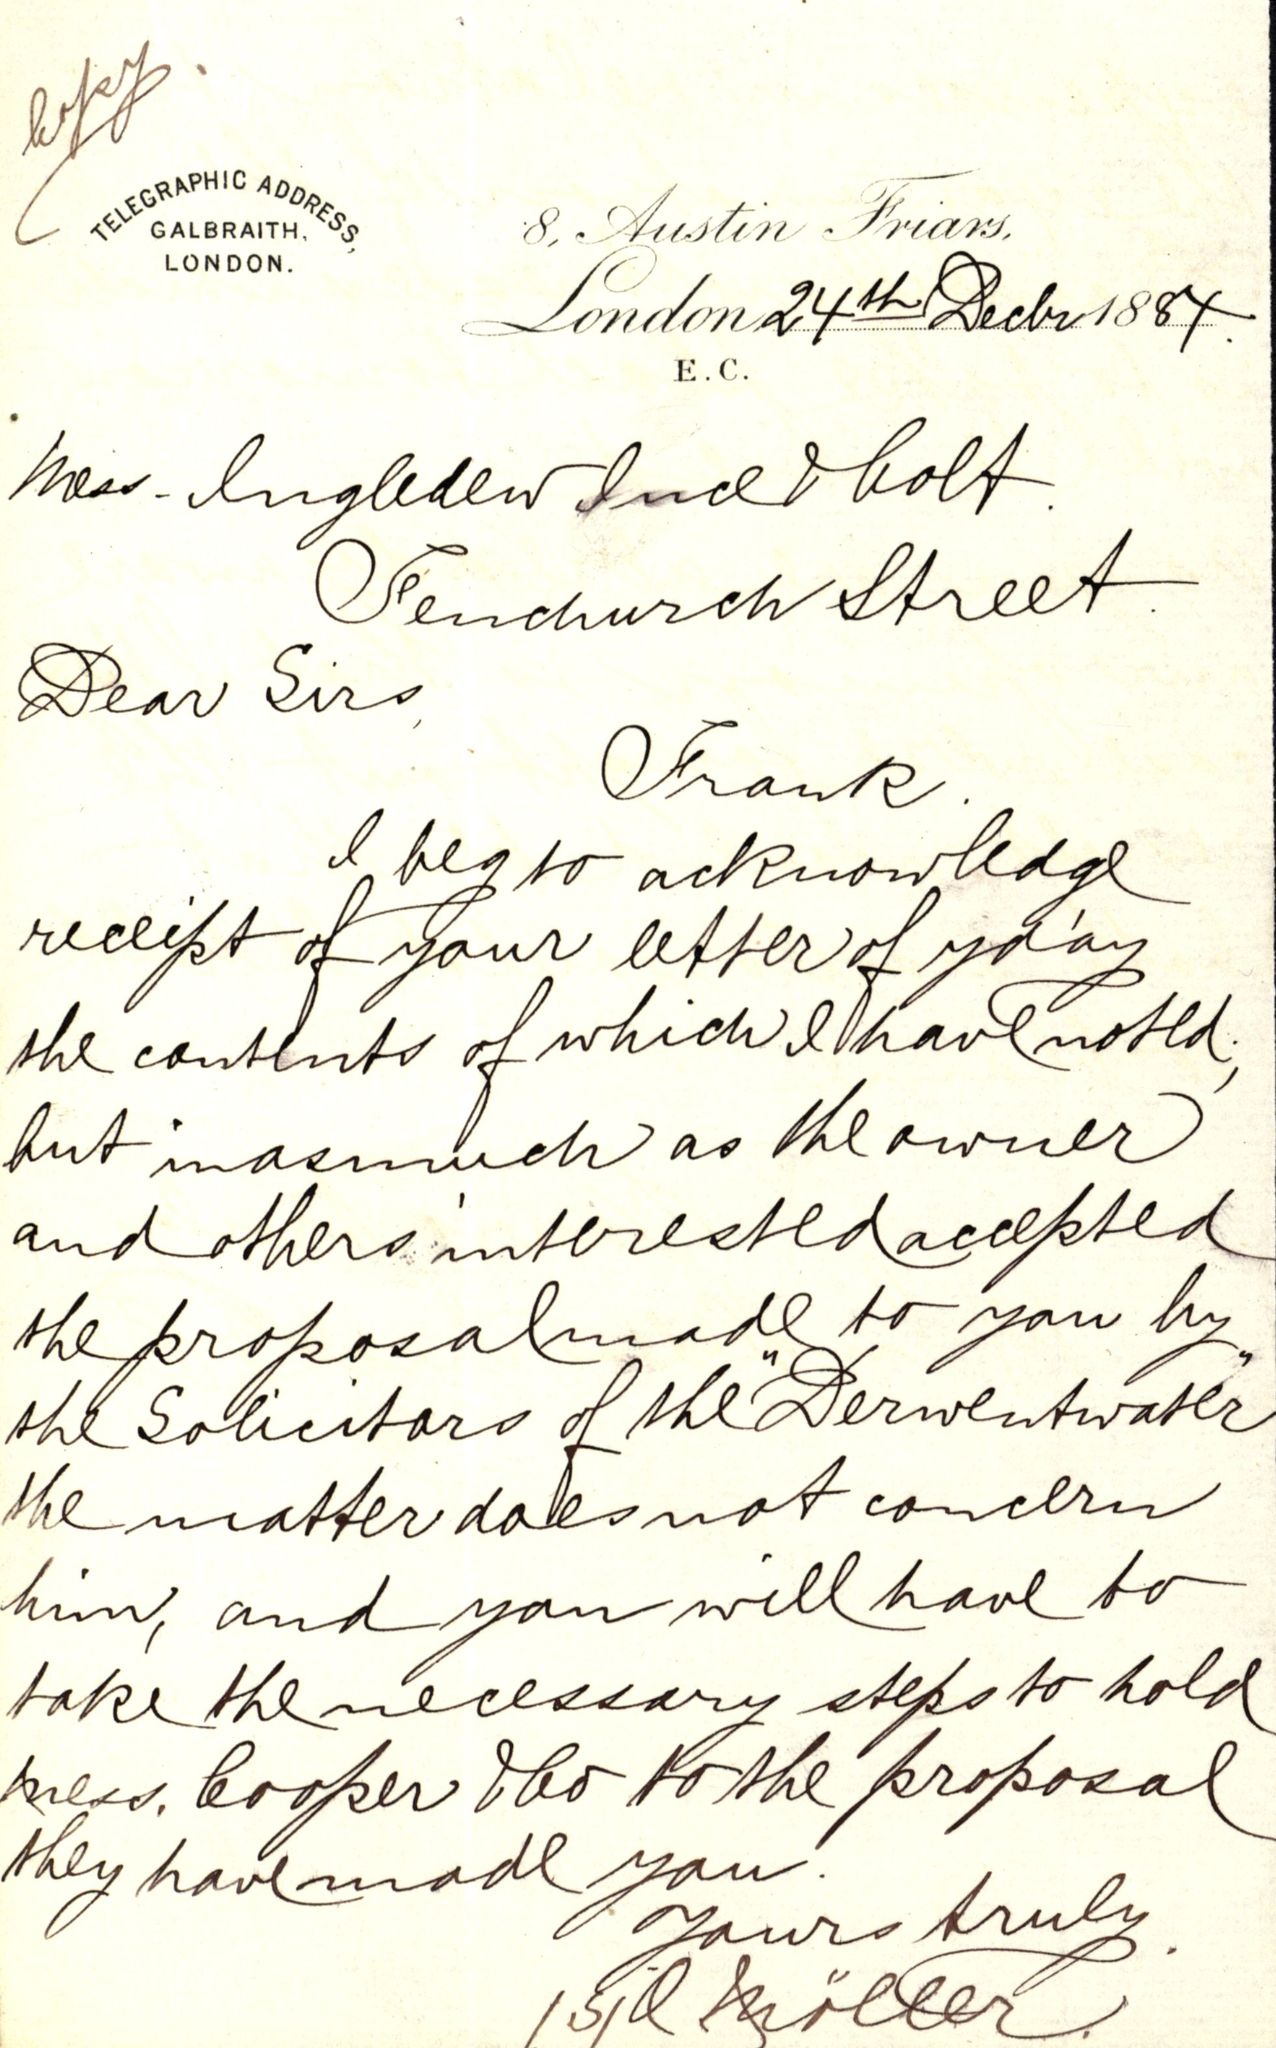 Copy.
TELEGRAPHIC ADDRESS,
GALBRAITH,
LONDON.
8, Austin Friars,
London 24th Decbr 1884.
E.C.
Mess- Ingledew Ince & Colt.
Fenchurch Street.
Dear Sirs,
Frank.
I beg to acknowledge
receipt of your letter of yd'ay
the contents of which I have noted;
but inasmuch as the owner
and others interested accepted
the proposal made to you by
the Solicitors of the "Derwentwater"
the matter does not concern
him, and you will have to
take the necessary steps to hold
Mess. Cooper & Co to the proposal
they have made you.
Yours truly.
Möller.